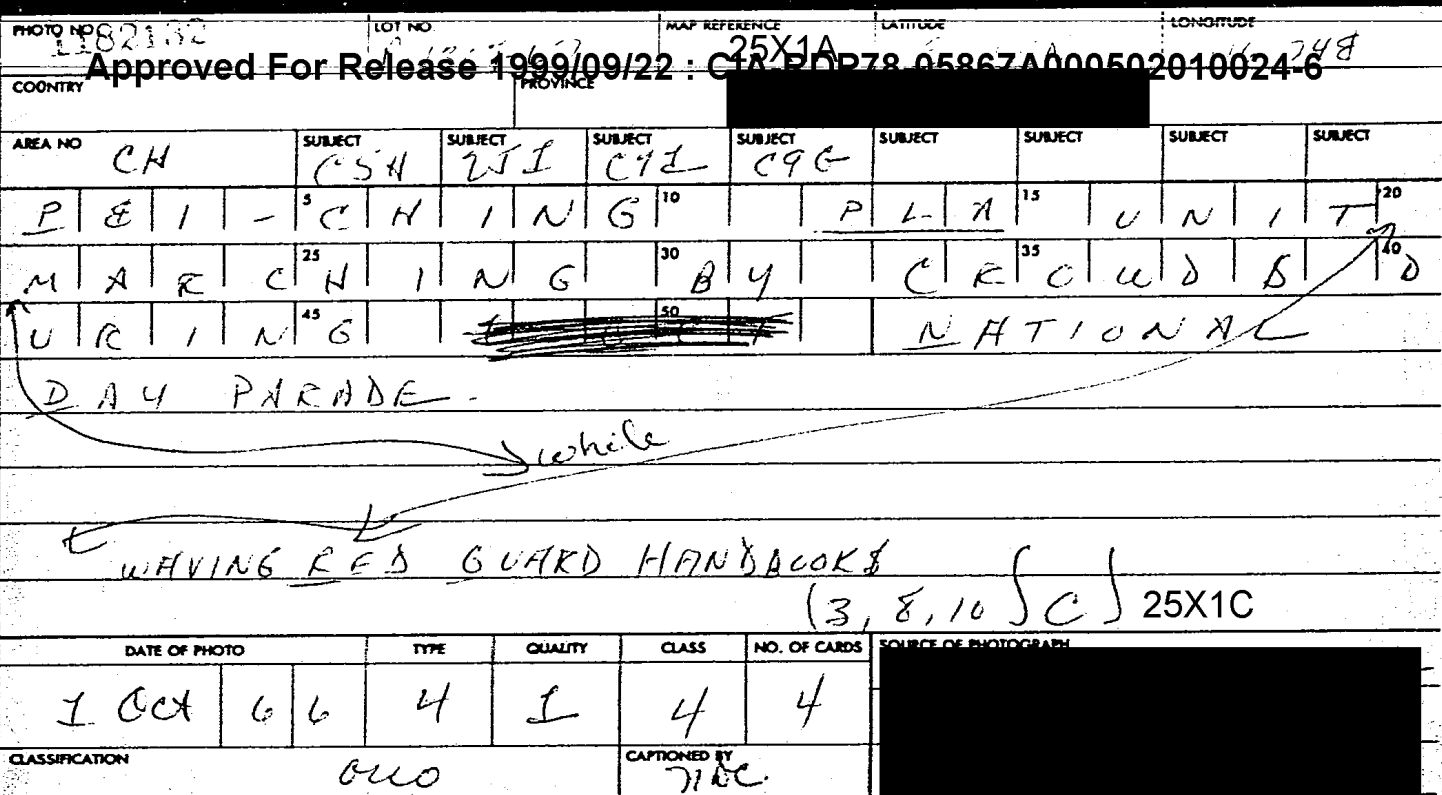 PHOTO NO LOT NO MAP REFERENCE LATITUDE LONGITUDE
1182132 25X1A 748
Approved For Release 1999/09/22 : CIA-RDP78-05867A000502010024-6
COUNTRY PROVINCE
AREA NO SUBJECT SUBJECT SUBJECT SUBJECT SUBJECT SUBJECT SUBJECT SUBJECT
CH C5H C9G
5 10 15 20
PEI-CHING PLA UNIT
25 30 35 40
MARCHING BY CROWDS D
45 50
URING NATIONAL
DAY PARADE.
while
WAVING RED GUARD HANDBOOKS
(3, 8, 10 C) 25X1C
DATE OF PHOTO TYPE QUALITY CLASS NO. OF CARDS SOURCE OF PHOTOGRAPH
1 Oct 66 4 1 4 4
CLASSIFICATION CAPTIONED BY
OUO